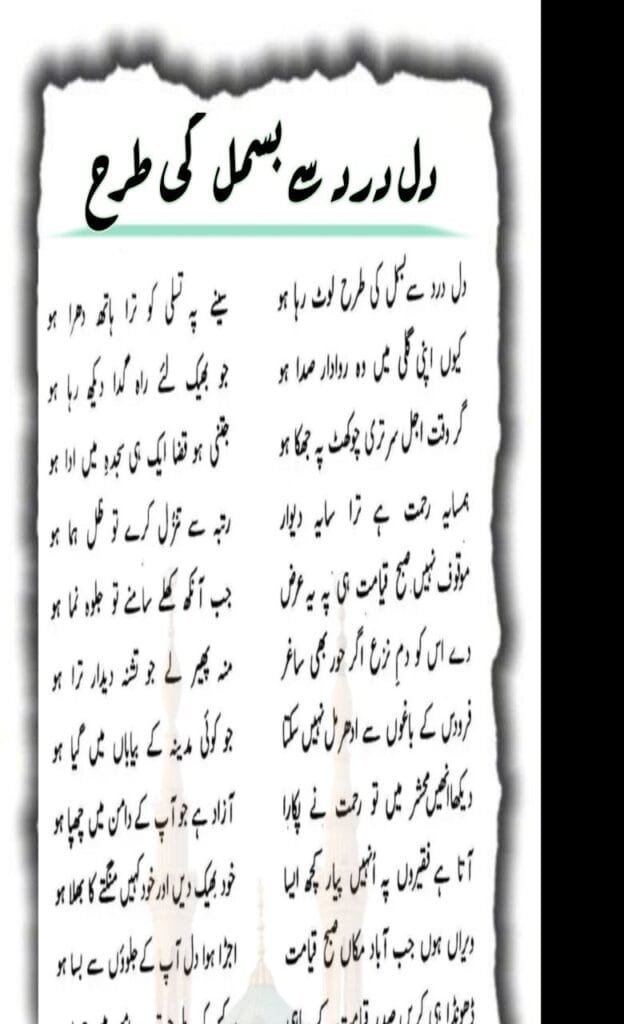 دل درد سے بسمل کی طرح
دل درد سے بسمل کی طرح لوٹ رہا ہو سینے پہ تسلی کو ترا ہاتھ دھرا ہو
کیوں اپنی گلی میں وہ روادار صدا ہو جو بھیک لئے راہ گدا دیکھ رہا ہو
گر وقت اجل سر تری چوکھٹ پہ جھکا ہو جتنی ہو قضا ایک ہی سجدہ میں ادا ہو
ہمسایہ رحمت ہے ترا سایہ دیوار رتبہ سے تنزل کرے تو ظل ہما ہو
موقوف نہیں صبح قیامت ہی پہ یہ عرض جب آنکھ کھلے سامنے تو جلوہ نما ہو
دے اس کو دمِ نزع اگر حور بھی ساغر منہ پھیر لے جو تشنہ دیدار ترا ہو
فردوس کے باغوں سے ادھر مل نہیں سکتا جو کوئی مدینہ کے بیاباں میں گیا ہو
دیکھا انھیں محشر میں تو رحمت نے پکارا آزاد ہے جو آپ کے دامن میں چھپا ہو
آتا ہے فقیروں پہ اُنہیں پیار کچھ ایسا خود بھیک دیں اور خود کہیں منگتے کا بھلا ہو
ویراں ہوں جب آباد مکاں صبح قیامت اجڑا ہوا دل آپ کے جلوؤں سے بسا ہو
ڈھونڈا ہی کریں صدر قیامت کے